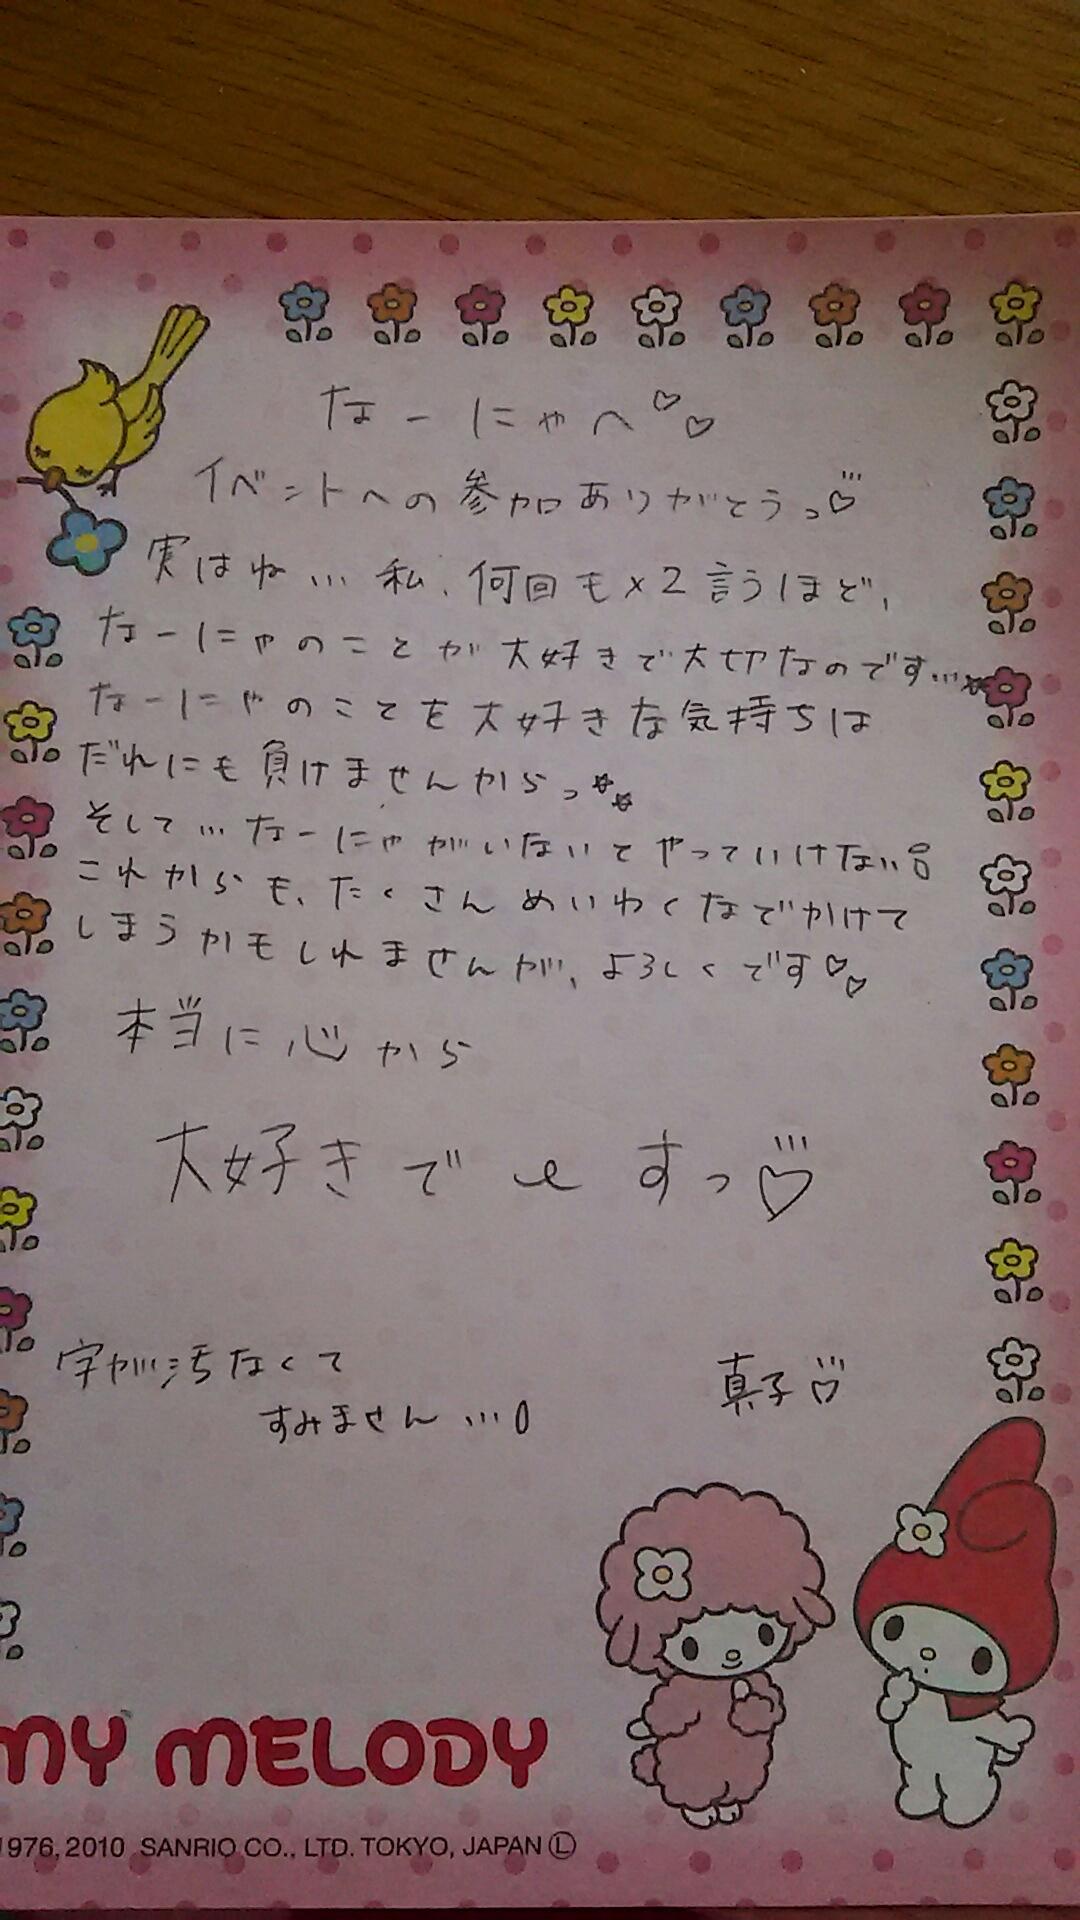 なーにゃへ♡♡
イベントへの参加ありがとうっ♡
実はね…私、何回も×2言うほど、
なーにゃのことが大好きで大切なのです…☆
なーにゃのことを大好きな気持ちは
だれにも負けませんからっ☆☆
そして…なーにゃがいないとやっていけない。
これからも、たくさんめいわくなでかけて
しまうかもしれませんが、よろしくです♡♡
本当に心から
大好きで〜すっ♡
字が汚なくて
すみません…
真子♡
MY MELODY
1976, 2010 SANRIO CO., LTD. TOKYO, JAPAN Ⓛ